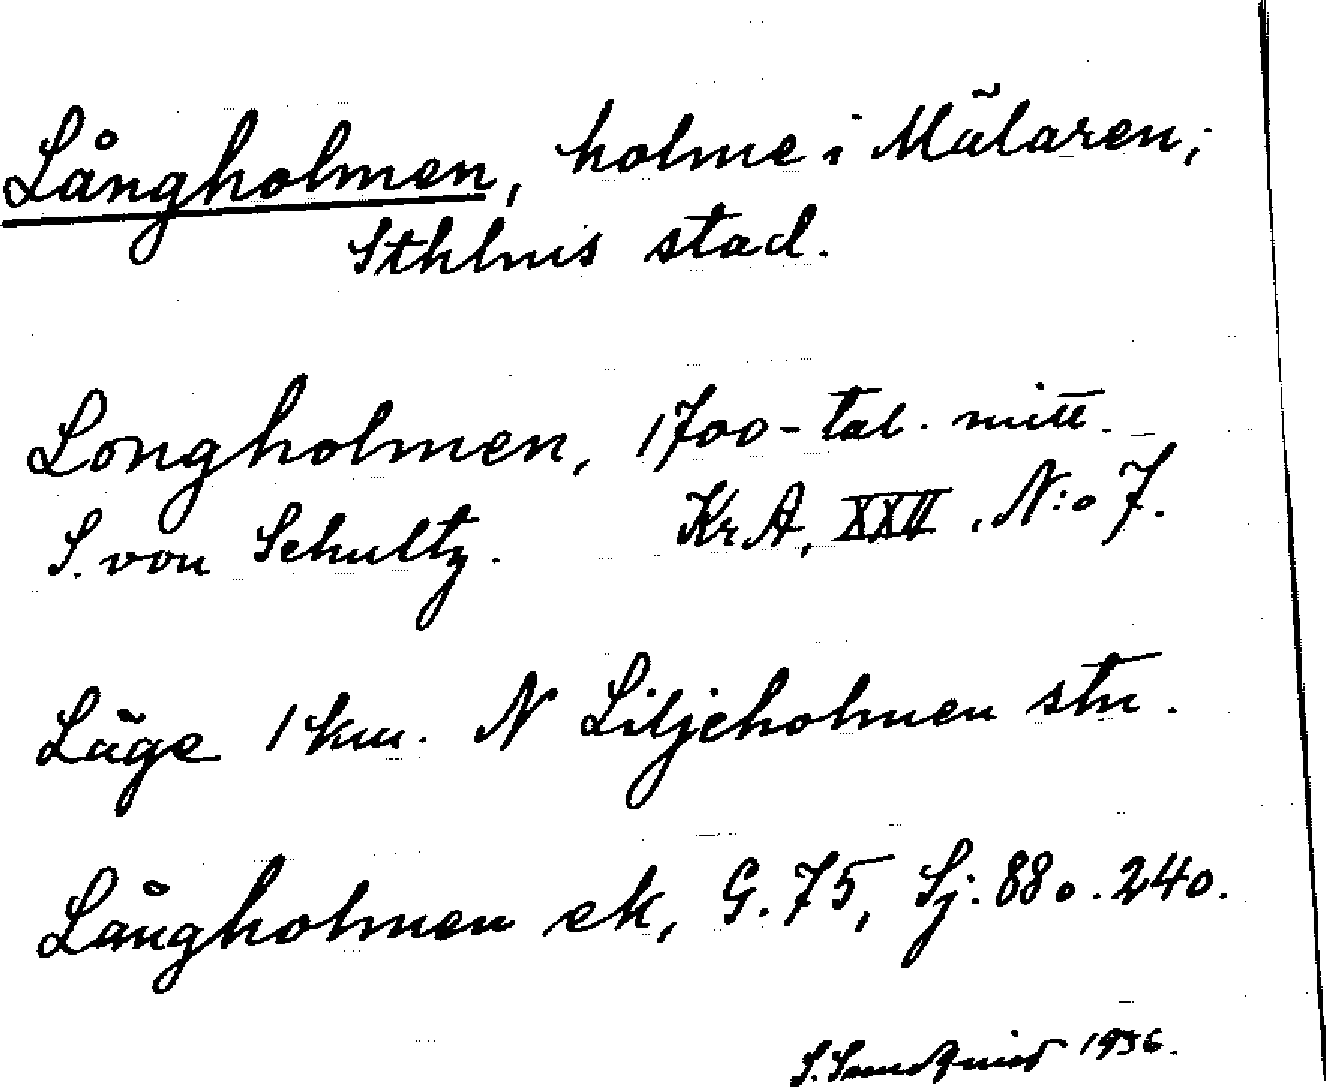 Långholmen, holme i Mälaren;
Sthlms stad.
Longholmen, 1700-tal. mitt.
S. von Schultz. KrA, XXII, N:o 7.
Läge 1 km. N Liljeholmen stn.
Långholmen ek, G. 75, Sj: 88 o. 240.
S. 1936.